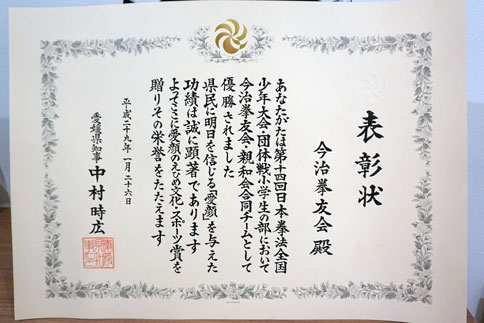 表彰状
今治拳友会 殿
あなたがたは第十四回日本拳法全国
少年大会・団体戦小学生の部において
今治拳友会・親和会合同チームとして
優勝されました
県民に明日を信じる「愛顔」を与えた
功績は誠に顕著であります
よってここに愛顔のえひめ文化・スポーツ賞を
贈りその栄誉をたたえます
平成二十九年一月二十六日
愛媛県知事 中村時広